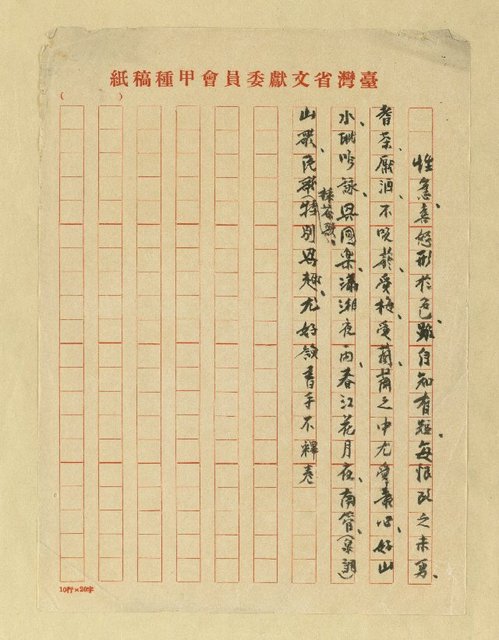 臺灣省文獻委員會甲種稿紙
性急、喜怒形於色、雖自知有短、每恨改之未勇、
耆茶厭酒、不吃菸、愛梅、愛蘭、蘭之中尤愛素心、好山
水、耽吟詠、與國樂、瀟湘夜雨、春江花月夜、南管(泉調)
山歌、民歌、採茶歌、特別興趣、尤好讀書手不釋卷
10行×20字